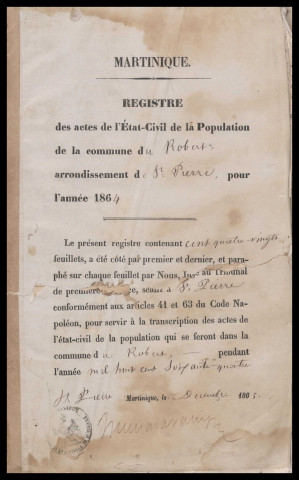 MARTINIQUE.
REGISTRE
des actes de l'État-Civil de la Population
de la commune du Robert
arrondissement d St Pierre, pour
l'année 1864
Le présent registre contenant cent quatre-vingts
feuillets, a été côté par premier et dernier, et para-
phé sur chaque feuillet par Nous, Juge au Tribunal
de première séant à St Pierre
conformément aux articles 41 et 63 du Code Na-
poléon, pour servir à la transcription des actes de
l'état-civil de la population qui se feront dans la
commune du Robert, pendant
l'année mil huit cent soixante-quatre
St Pierre Martinique, le Décembre 1863.